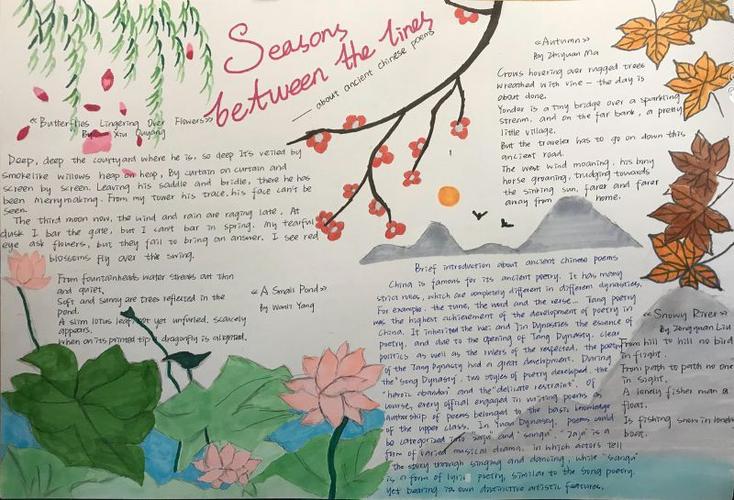 Seasons
between the lines
— about ancient chinese poems
《Butterflies Lingering Over Flowers》
By Xiu Ouyang
Deep, deep the courtyard where he is, so deep It's veiled by
smokelike willows heap on heap, By curtain on curtain and
screen by screen. Leaving his saddle and bridle, there he has
been merrymaking. From my tower his trace, his face can't be
seen.
The third moon now, the wind and rain are raging late, At
dusk I bar the gate, but I can't bar in spring. My tearful
eye ask flowers, but they fail to bring an answer. I see red
blossoms fly over the swing.
《A Small Pond》
by Wanli Yang
From fountainheads water streaks out thin
and quiet,
Soft and sunny are trees reflected in the
pond.
A slim lotus leaf, not yet unfurled, scarcely
appears,
when on its pointed tip a dragonfly is aligned.
《Autumn》
By Zhiyuan Ma
Crows hovering over rugged trees
wreathed with vine — the day is
about done.
Yonder is a tiny bridge over a sparkling
stream, and on the far bank, a pretty
little village.
But the traveler has to go on down this
ancient road.
The west wind moaning, his bony
horse groaning, trudging towards
the sinking sun, farer and farer
away from home.
Brief introduction about ancient chinese poems
China is famous for its ancient poetry. It has many
strict rules, which are completely different in different dynasties.
For example, the tune, the word and the verse... Tang poetry
was the highest achievement of the development of poetry in
China. It inherited the Wei and Jin Dynasties the essence of
poetry, and due to the opening of Tang Dynasty, clear
politics as well as the rulers of the respected, the poetry
of the Tang Dynasty had a great development. During
the Song Dynasty, two styles of poetry developed, the
"heroic abandon" and the "delicate restraint". Of
course, every official engaged in writing poems as
authorship of poems belonged to the basic knowledge
of the upper class. In Yuan Dynasty, poems could
be categorized into "zaju" and "sanqu". "Zaju" is a
form of varied musical drama, in which actors tell
the story through singing and dancing, while "sanqu"
is a form of lyric poetry, similar to the Song poetry,
yet bearing its own distinctive artistic features.
《Snowy River》
By Zongyuan Liu
From hill to hill no bird
in flight.
From path to path no one
in sight.
A lonely fisher man a
float.
Is fishing snow in lonely
boat.